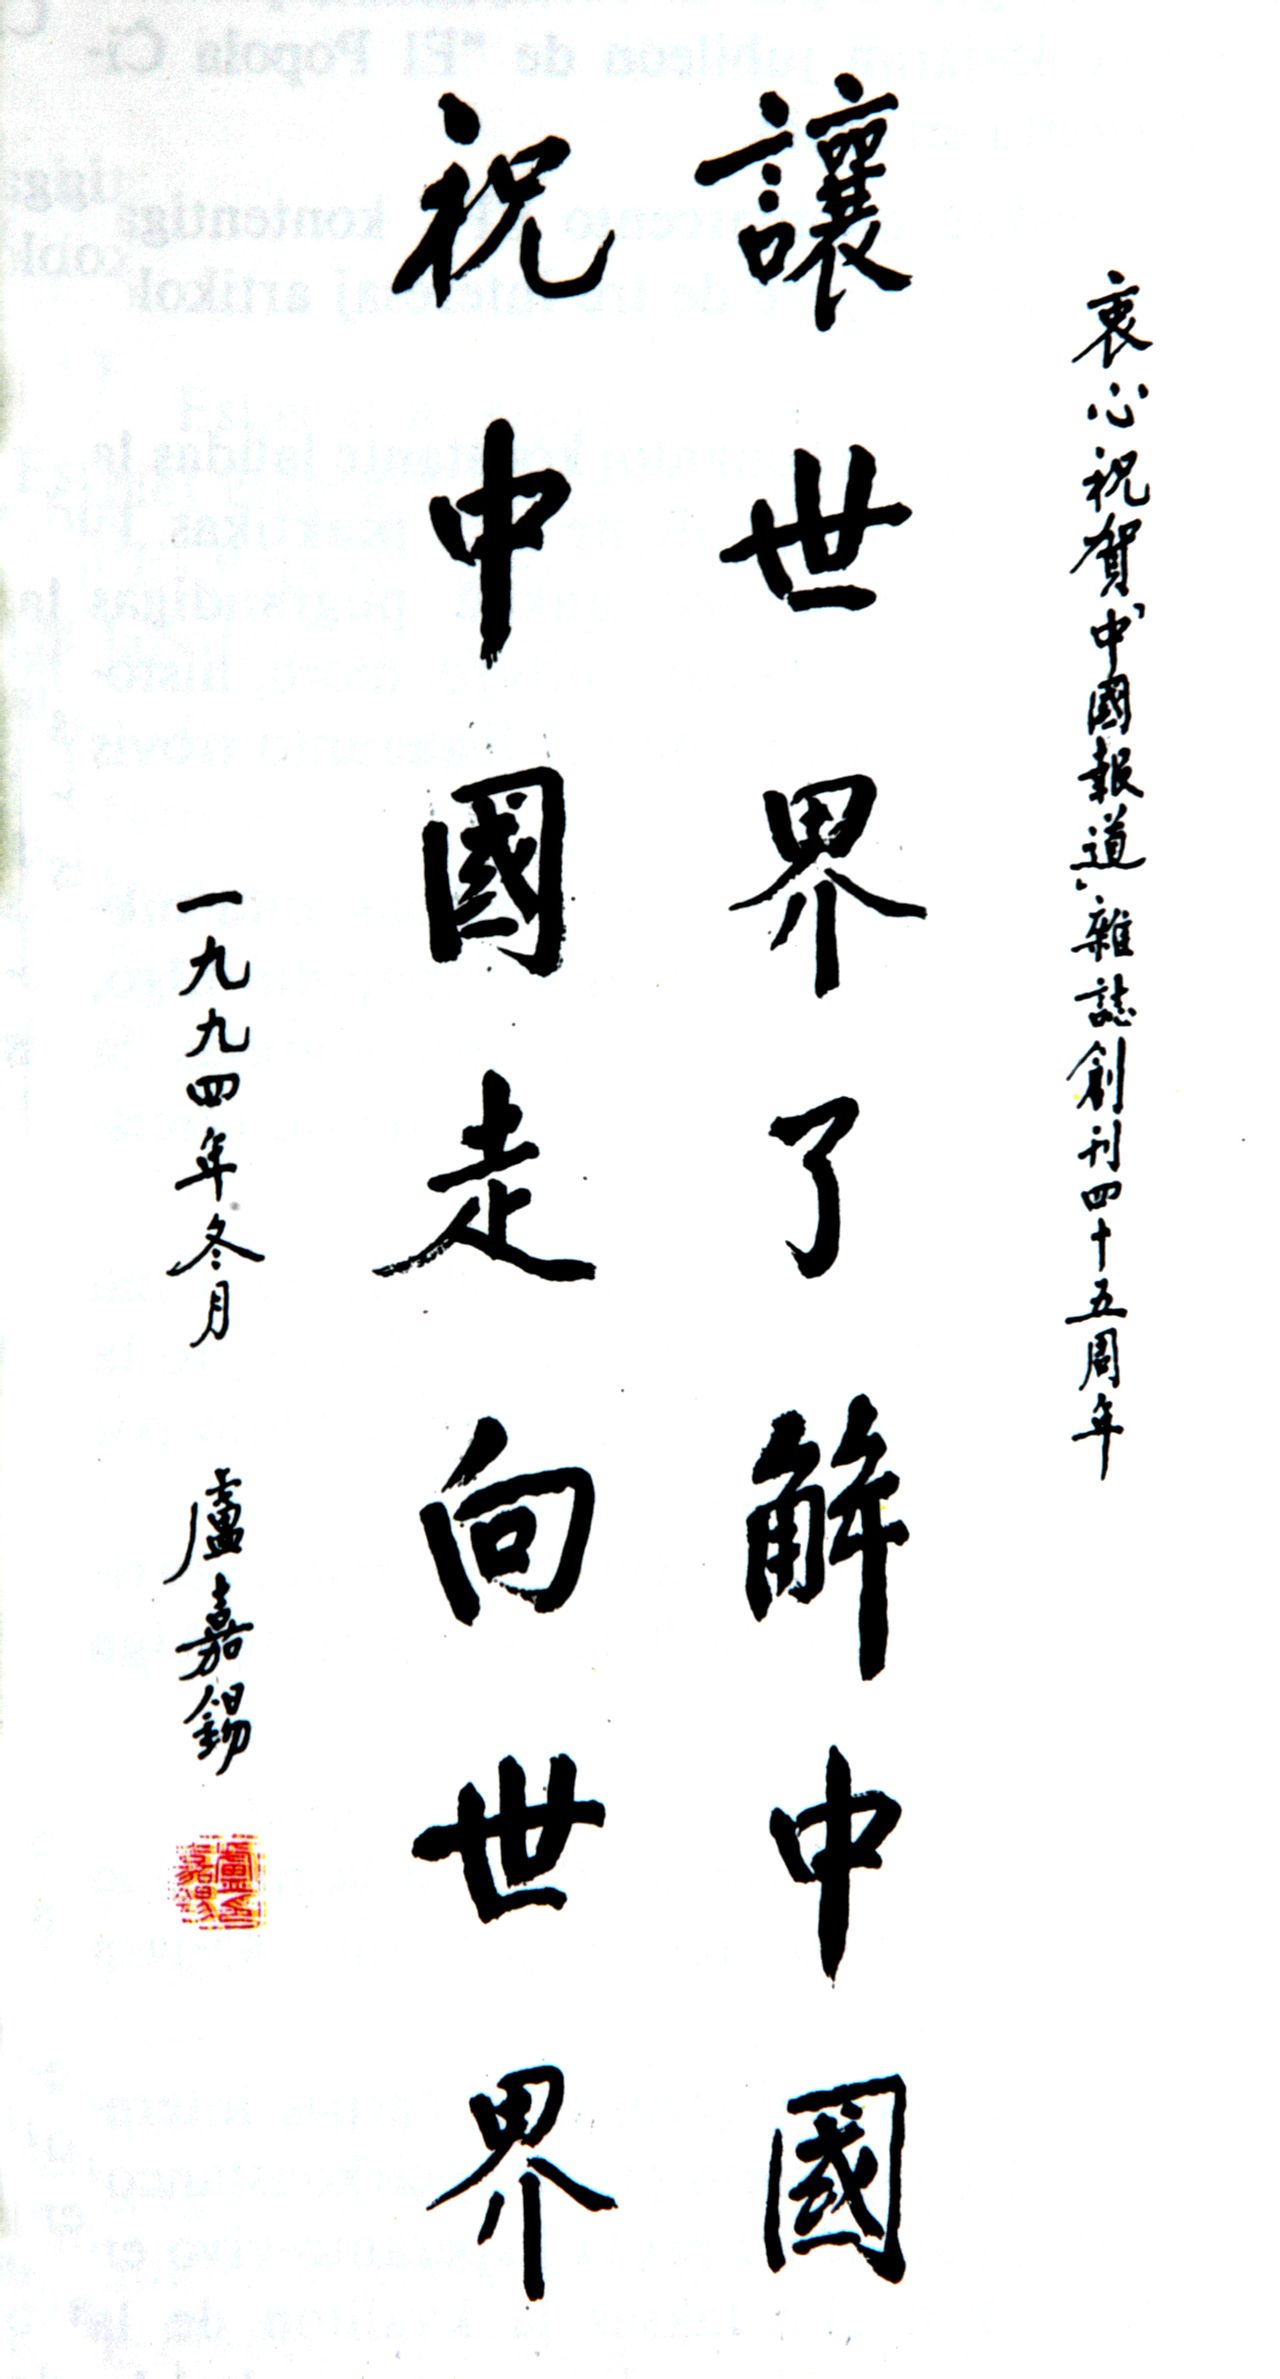 衷心祝賀「中國報道」雜誌創刊四十五周年
讓世界了解中國
祝中國走向世界
一九九四年冬月 盧嘉錫